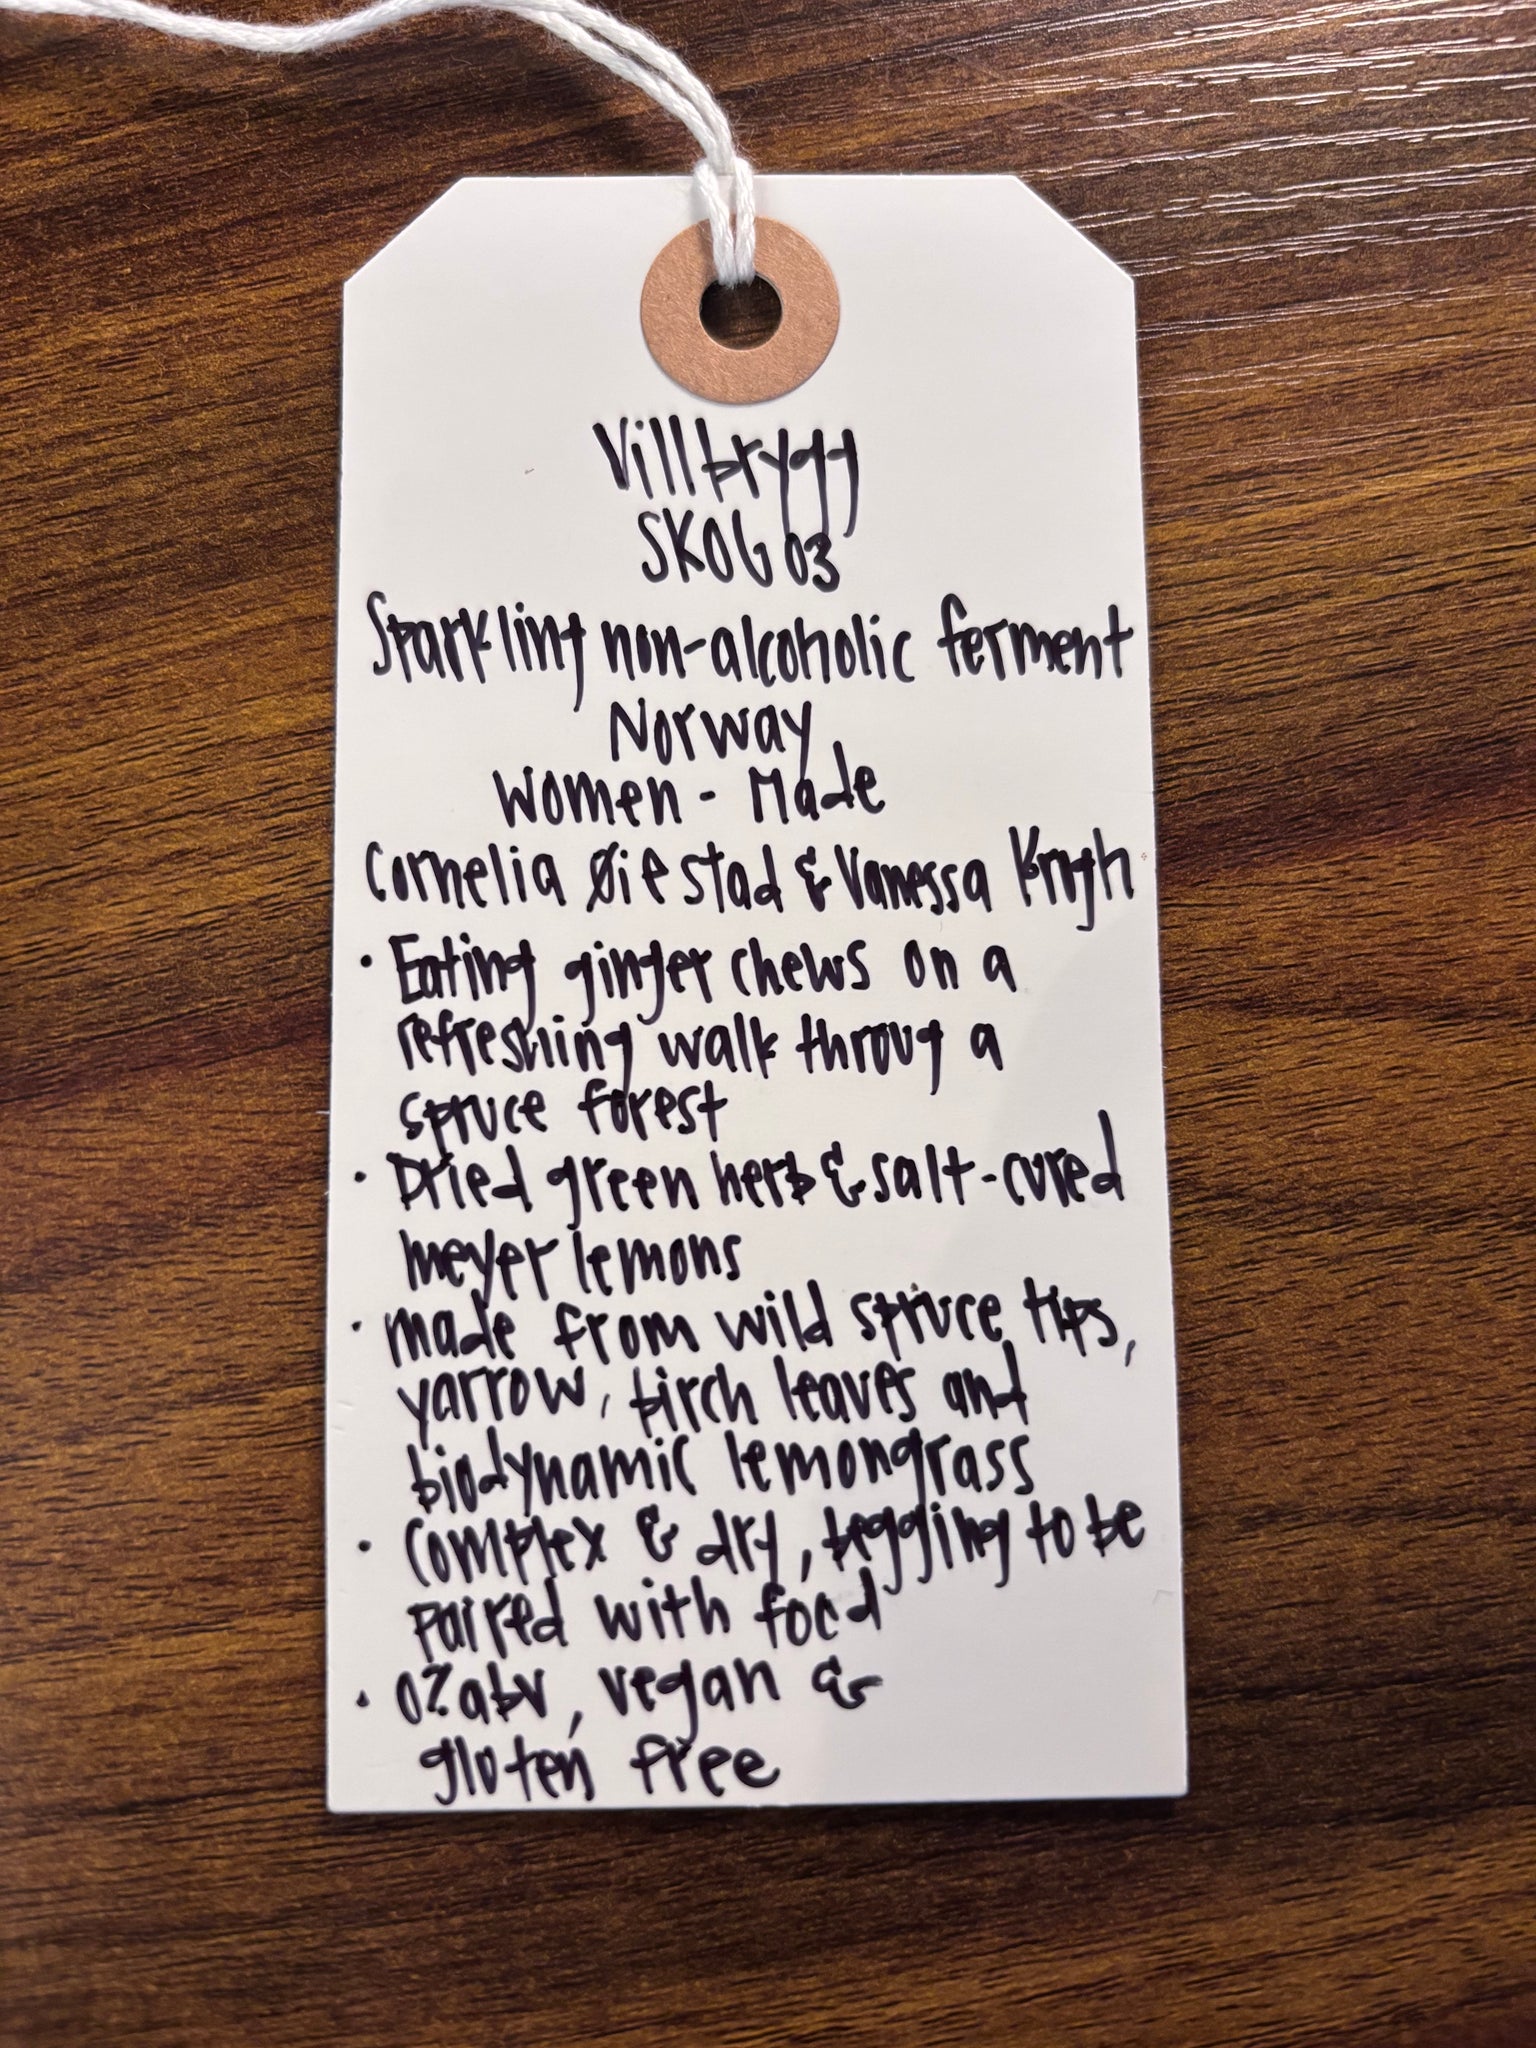 Villbrygg
SKOG 03
Sparkling non-alcoholic ferment
Norway
Women - Made
Cornelia Øiestad & Vanessa Krogh
• Eating ginger chews on a
refreshing walk throug a
spruce forest
• Dried green herbs & salt-cured
meyer lemons
• made from wild spruce tips,
yarrow, birch leaves and
biodynamic lemongrass
• complex & dry, begging to be
paired with food
• 0% abv, vegan &
gluten free